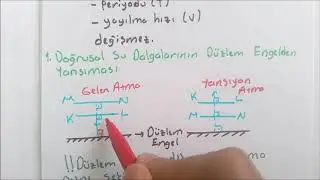 - periyodu (T)
- yayılma hızı (V)
değişmez.
1. Doğrusal Su Dalgalarının Düzlem Engelden
Yansıması
Gelen Atma
Yansıyan
Atma
M N
K L
K L
M N
→ Düzlem
Engel
!! Düzlem